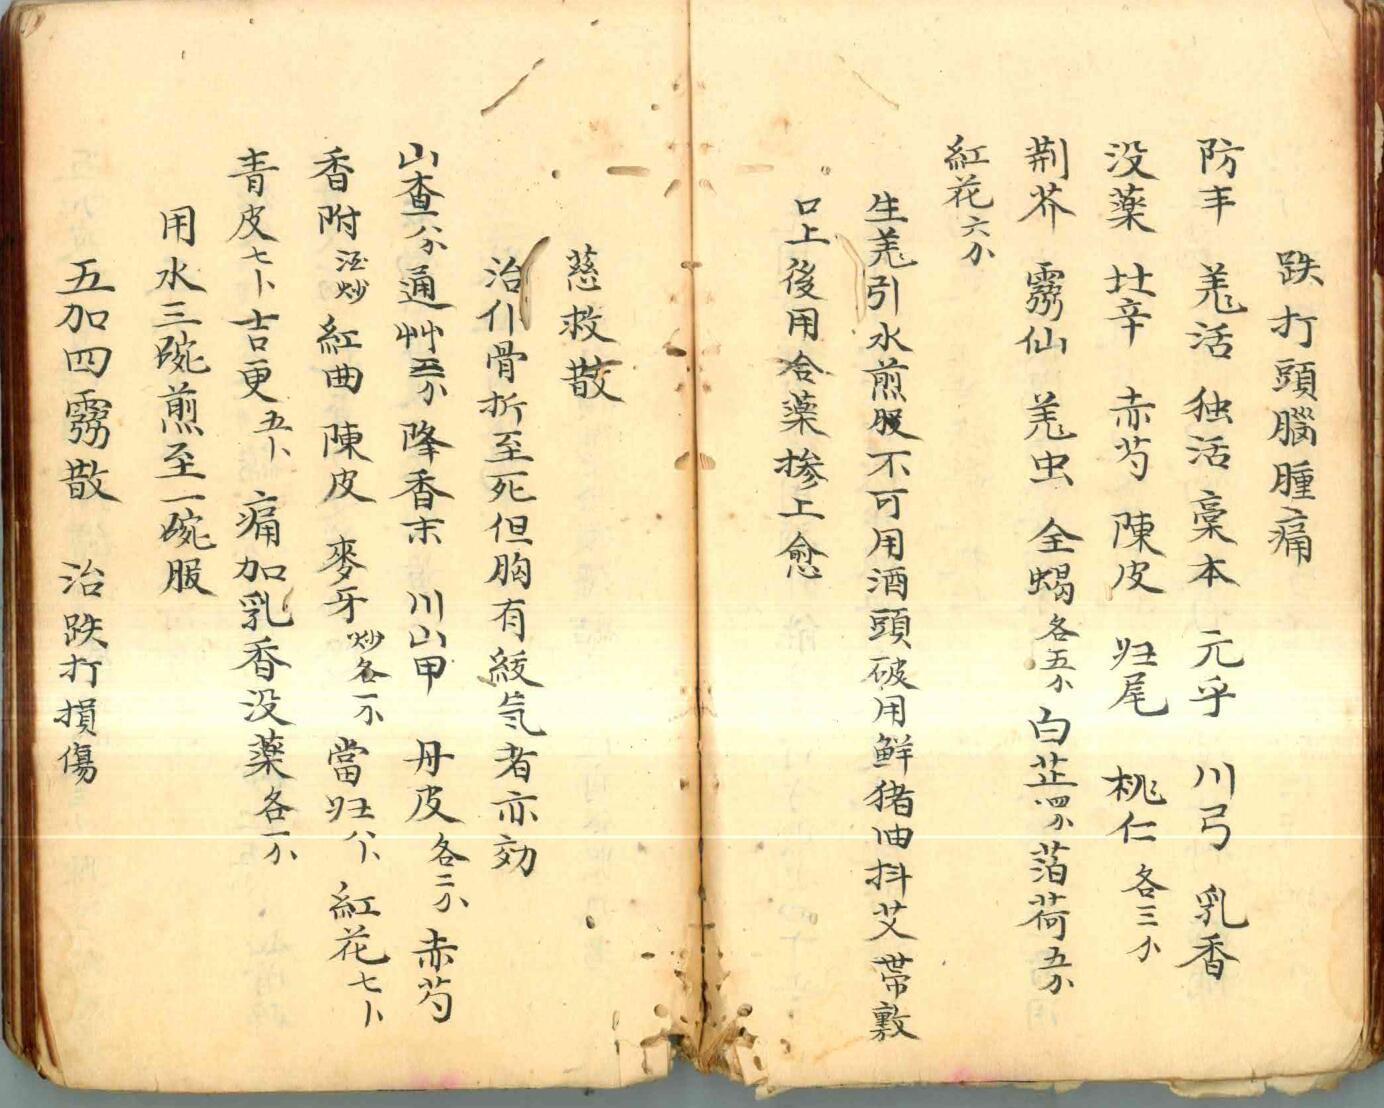 跌打頭腦腫痛
防丰 羌活 独活 藁本 元乎 川弓 乳香
没藥 辛 赤芍 陳皮 归尾 桃仁 各三分
荆芥 灵仙 羌虫 全蝎 各五分 白芷 四分 薄荷 五分
紅花 六分
生羌引水煎服不可用酒頭破用鮮猪油抖艾帶敷
口上後用合藥掺上愈
慈救散
治骨折至死但胸有緩氣者亦効
山查 八分 通艸 三分 降香末 川山甲 丹皮 各二分 赤芍
香附 炒 紅曲 陳皮 麥牙 炒各一分 當归 八卜 紅花 七卜
青皮 七卜 吉更 五卜 痛加乳香没藥 各一分
用水三碗煎至一碗服
五加四灵散 治跌打損傷